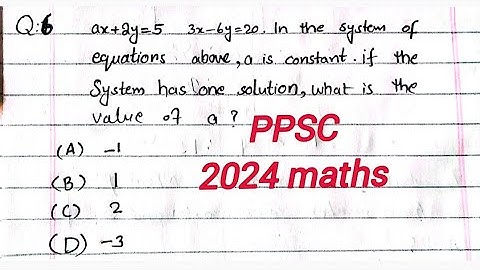 Q:6 ax+2y=5 3x-6y=20. In the system of
equations above, a is constant. if the
System has one solution, what is the
value of a?
PPSC
2024 maths
(A) -1
(B) 1
(C) 2
(D) -3